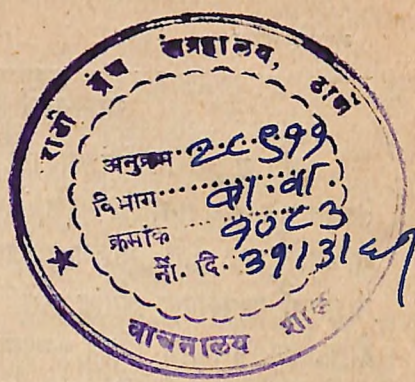 राठी ग्रंथ संग्रहालय, ठाणे
अनुक्रम २८९११
विभाग का.वा.
क्रमांक १०८३
नों. दि. ३१।३।६१
वाचनालय शाखा